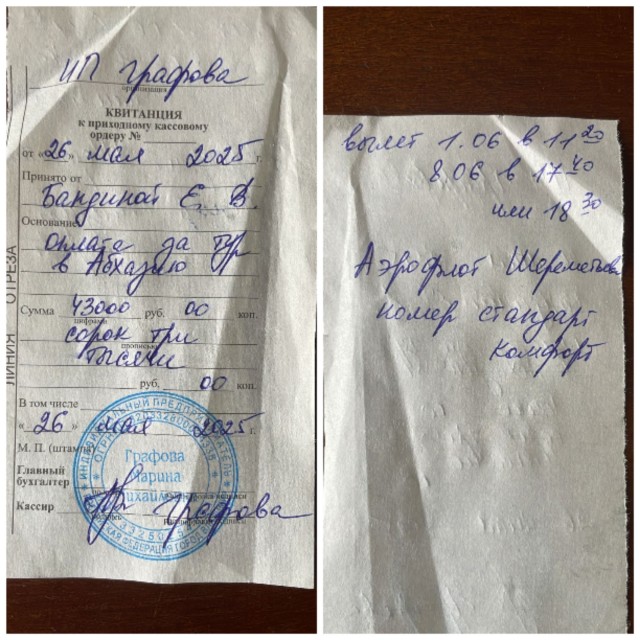 ИП Графова
организация
КВИТАНЦИЯ
к приходному кассовому
ордеру №
от «26» мая 2025 г.
Принято от
Бандиной Е. В.
Основание
оплата за тур
в Абхазию
Сумма 43000 руб. 00 коп.
цифрами
сорок три
прописью
тысячи
руб. 00 коп.
В том числе
«26» мая 2025 г.
М. П. (штампа)
Главный
бухгалтер
Кассир Графова
ЛИНИЯ ОТРЕЗА
ИНДИВИДУАЛЬНЫЙ ПРЕДПРИНИМАТЕЛЬ
Графова
Марина
вылет 1.06 в 11 20
8.06 в 17 40
или 18 30
Аэрофлот Шереметьево
номер стандарт
комфорт